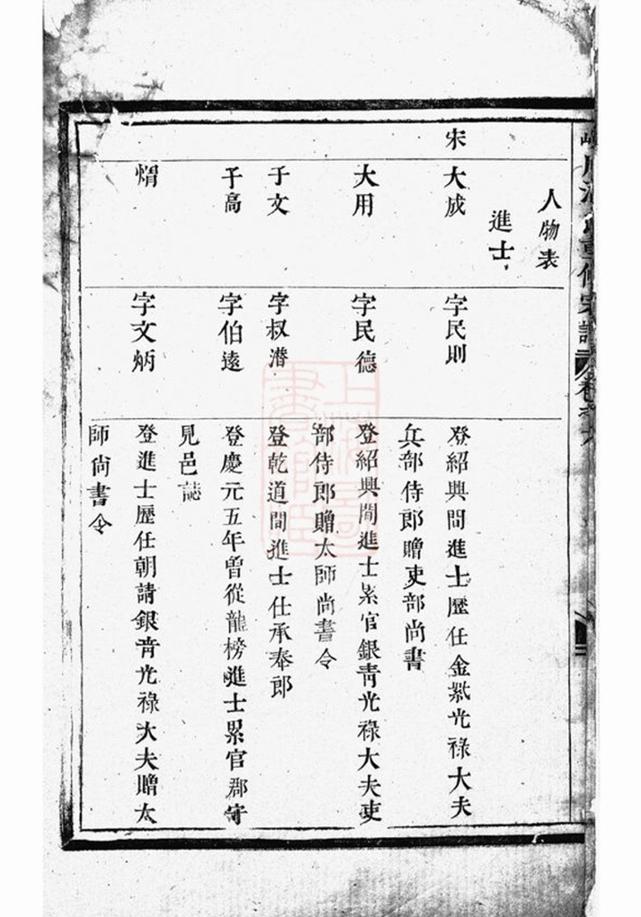 人物表
進士
宋 大成 字民則 登紹興間進士歷任金紫光祿大夫
兵部侍郎贈吏部尚書
大用 字民德 登紹興間進士累官銀青光祿大夫吏
部侍郎贈太師尚書令
于文 字叔潛 登乾道間進士仕承奉郎
于高 字伯遠 登慶元五年曾從龍榜進士累官郡守
見邑誌
熠 字文炳 登進士歷任朝請銀青光祿大夫贈太
師尚書令